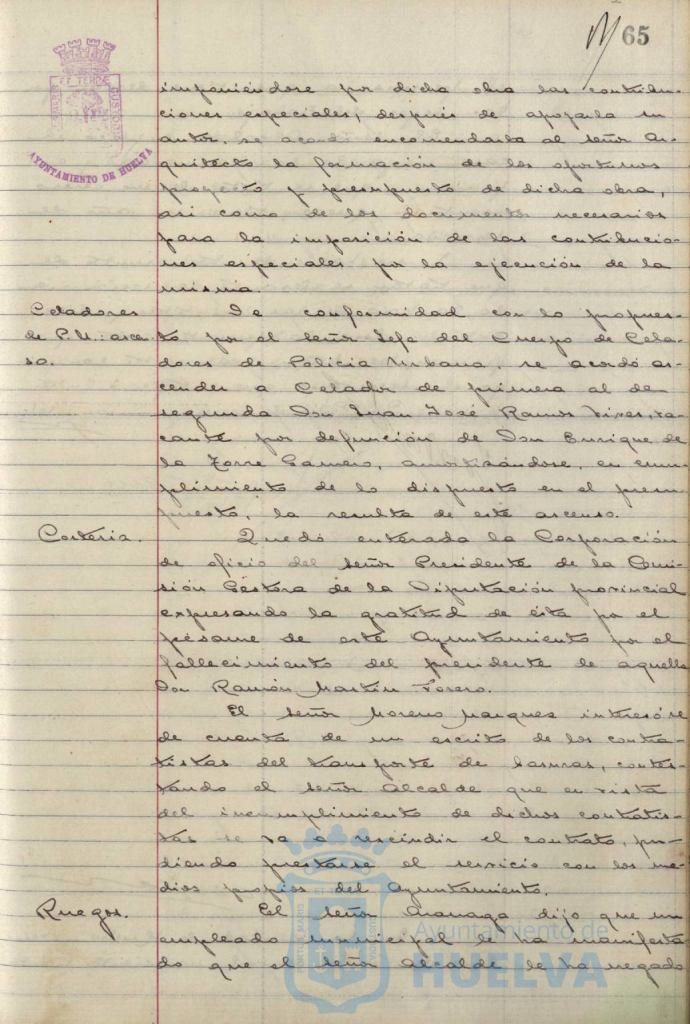 65
AYUNTAMIENTO DE HUELVA
imponiéndose por dicha obra las contribu-
ciones especiales, después de apoyarla su
autor, se acordó encomendarla al señor Ar-
quitecto la formación de los oportunos
proyecto y presupuesto de dicha obra,
asi como de los documentos necesarios
para la imposición de las contribucio-
nes especiales por la ejecución de la
misma.
Celadores
de P.U.: ascen-
so.
De conformidad con lo propues-
to por el señor Jefe del Cuerpo de Cela-
dores de Policia Urbana, se acordó as-
cender a Celador de primera al de
segunda Don Juan José Ramos Vives, va-
cante por defunción de Don Enrique de
la Torre Gamero, amortizándose, en cum-
plimiento de lo dispuesto en el presu-
puesto, la resulta de este ascenso.
Cortesia.
Quedó enterada la Corporación
de oficio del señor Presidente de la Comi-
sión Gestora de la Diputación provincial
expresando la gratitud de ésta por el
pésame de este Ayuntamiento por el
fallecimiento del presidente de aquella
Don Ramón Martín
El señor Moreno Marquez interesó se
de cuenta de un escrito de los contra-
tistas del transporte de basuras, contes-
tando el señor Alcalde que en vista
del incumplimiento de dichos contratis-
tas se va a rescindir el contrato, pu-
diendo prestarse el servicio con los me-
dios propios del Ayuntamiento.
Ruegos.
El señor dijo que un
empleado municipal le ha manifesta-
do que el señor Alcalde le ha negado
Ayuntamiento de
HUELVA